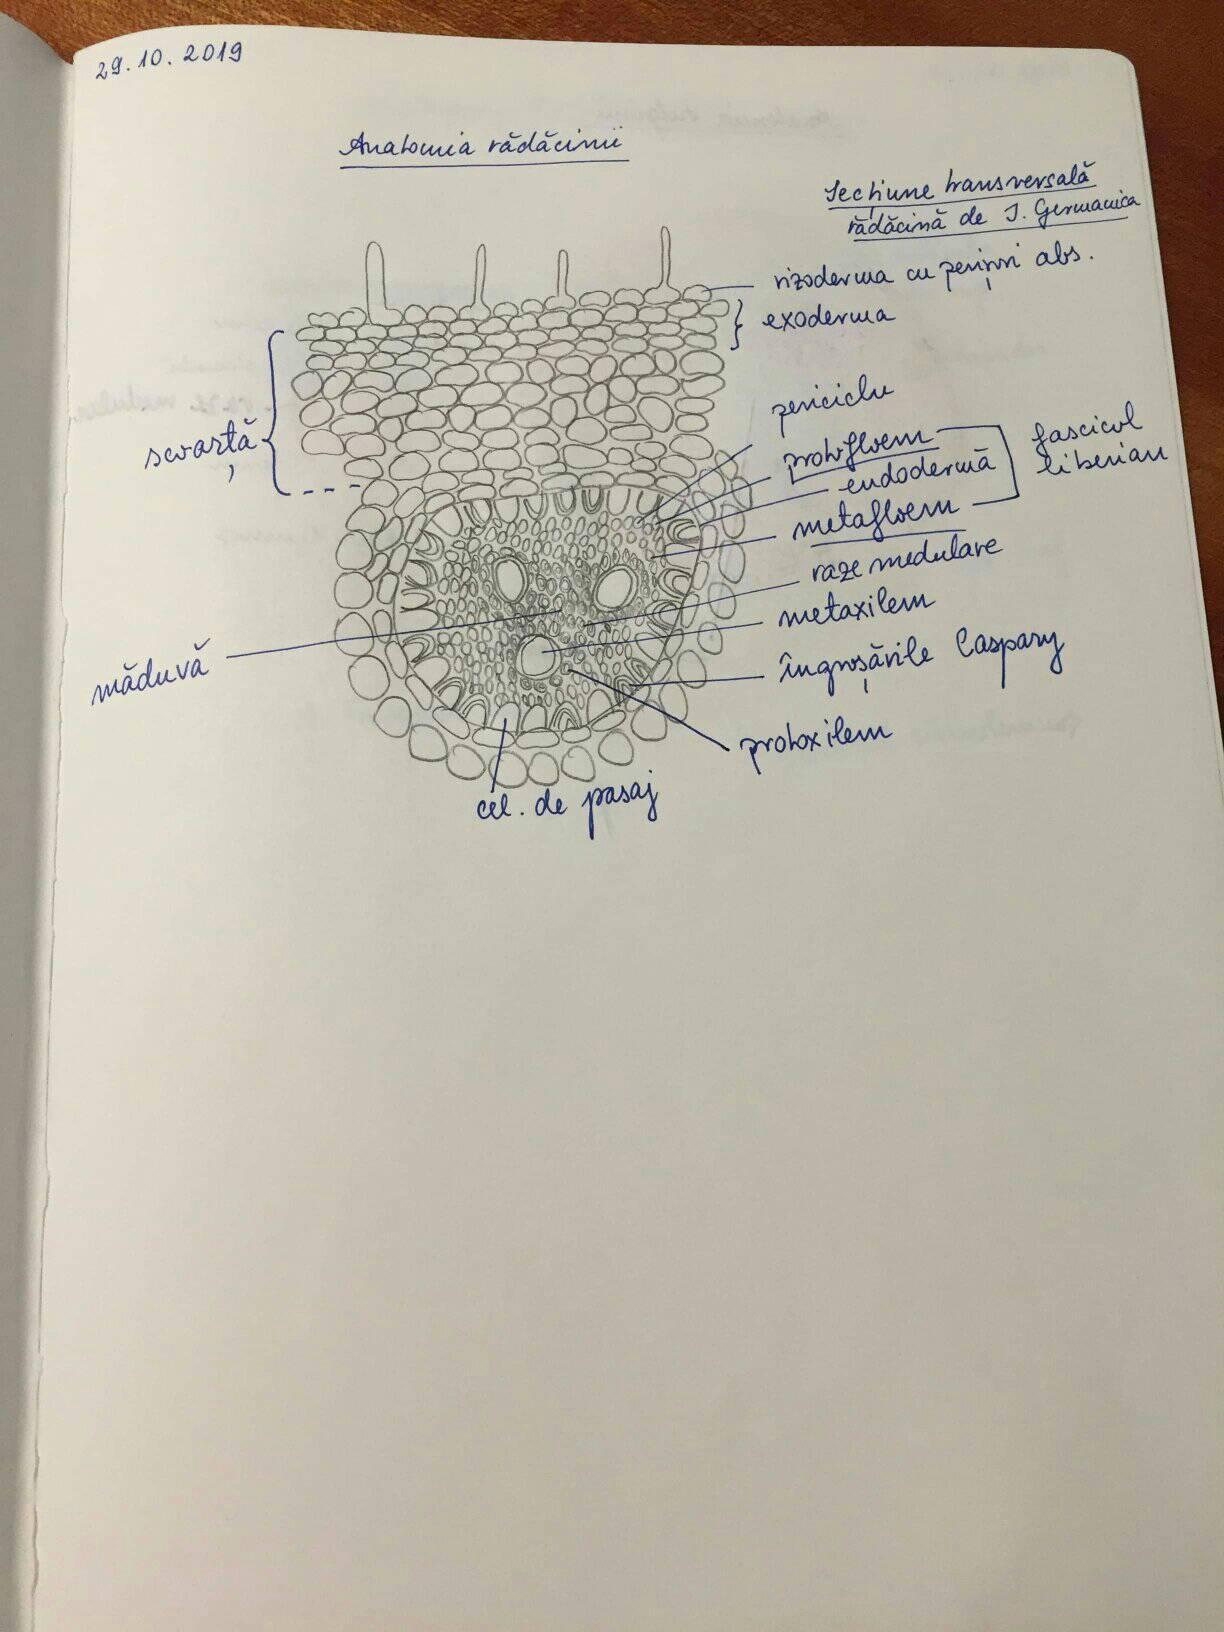 29.10.2019
Anatomia rădăcinii
Secțiune transversală
rădăcină de I. Germanica
rizoderma cu perișori abs.
exoderma
scoarță
periciclu
protofloem
endodermă
metafloem
fascicol
liberian
raze medulare
metaxilem
îngroșările Caspary
protoxilem
măduvă
cel. de pasaj